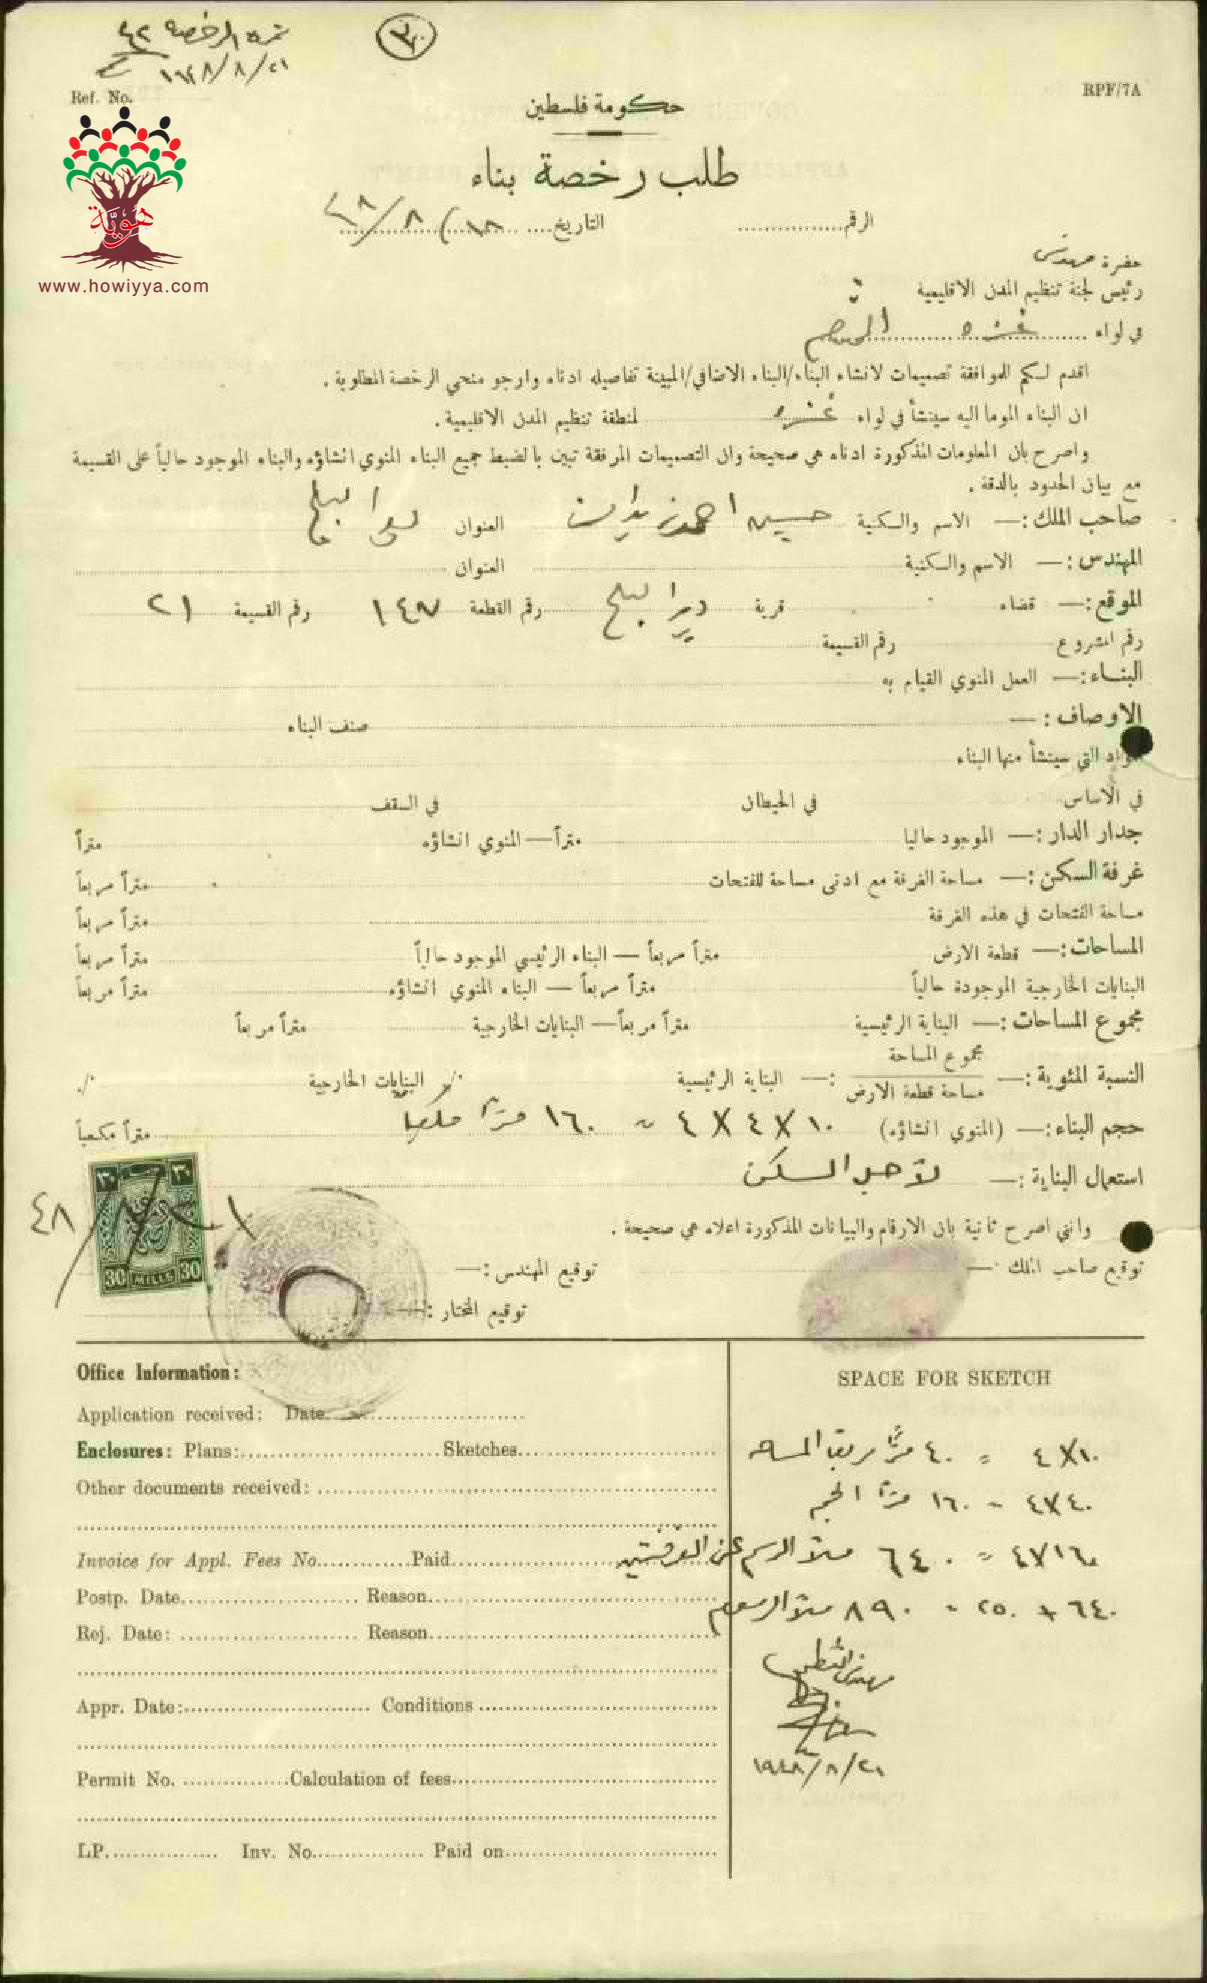 نمرة الرخصة ٤٢
٢١/٨/١٩٤٨
٣٠
Ref. No.
RPF/7A
هوية
www.howiyya.com
حكومة فلسطين
طلب رخصة بناء
الرقم................ التاريخ.... ١٨/٨/٤٨
حضرة مهندس
رئيس لجنة تنظيم المدن الاقليمية
في لواء غزه
اقدم لكم للموافقة تصميمات لانشاء البناء/البناء الاضافي/المبينة تفاصيله ادناه وارجو منحي الرخصة المطلوبة .
ان البناء الموما اليه سينشأ في لواء غزه لمنطقة تنظيم المدن الاقليمية .
واصرح بان المعلومات المذكورة ادناه هي صحيحة وان التصميمات المرفقة تبين بالضبط جميع البناء المنوي انشاؤه والبناء الموجود حالياً على القسيمة
مع بيان الحدود بالدقة .
صاحب الملك :— الاسم والكنية حسين احمد العنوان دير البلح
المهندس :— الاسم والكنية العنوان
الموقع :— قضاء قرية دير البلح رقم القطعة ١٤٧ رقم القسيمة ٢١
رقم المشروع رقم القسيمة
البناء :— العمل المنوي القيام به
الاوصاف :— صنف البناء
المواد التي سينشأ منها البناء
في الاساس في الحيطان في السقف
جدار الدار :— الموجود حاليا متراً — المنوي انشاؤه متراً
غرفة السكن :— مساحة الغرفة مع ادنى مساحة للفتحات متراً مربعاً
مساحة الفتحات في هذه الغرفة متراً مربعاً
المساحات :— قطعة الارض متراً مربعاً — البناء الرئيسي الموجود حالياً متراً مربعاً
البنايات الخارجية الموجودة حالياً متراً مربعاً — البناء المنوي انشاؤه متراً مربعاً
مجموع المساحات :— البناية الرئيسية متراً مربعاً — البنايات الخارجية متراً مربعاً
النسبة المئوية :— مجموع المساحة / مساحة قطعة الارض :— البناية الرئيسية ٠/٠ البنايات الخارجية ٠/٠
حجم البناء :— (المنوي انشاؤه) ١٠ X ٤ X ٤ = ١٦٠ مترا مكعبا متراً مكعباً
استعمال البناية :— لاجل السكن
وانني اصرح ثانية بان الارقام والبيانات المذكورة اعلاه هي صحيحة .
توقيع صاحب الملك :— توقيع المهندس :—
توقيع المختار :—
٣٠ ٣٠
30 MILLS 30
٢١/٨/٤٨
Office Information:
Application received: Date
Enclosures: Plans: Sketches
Other documents received:
Invoice for Appl. Fees No. Paid
Postp. Date Reason
Rej. Date: Reason
Appr. Date: Conditions
Permit No. Calculation of fees
LP. Inv. No. Paid on
SPACE FOR SKETCH
١٠ X ٤ = ٤٠ مترا مربعا المساحه
٤٠ X ٤ = ١٦٠ مترا الحجم
١٦٠ X ٤ = ٦٤٠ ملا الرسم عن الغرفتين
٦٤٠ + ٢٥٠ = ٨٩٠ ملا الرسوم
مهندس التنظيم
٢١/٨/١٩٤٨